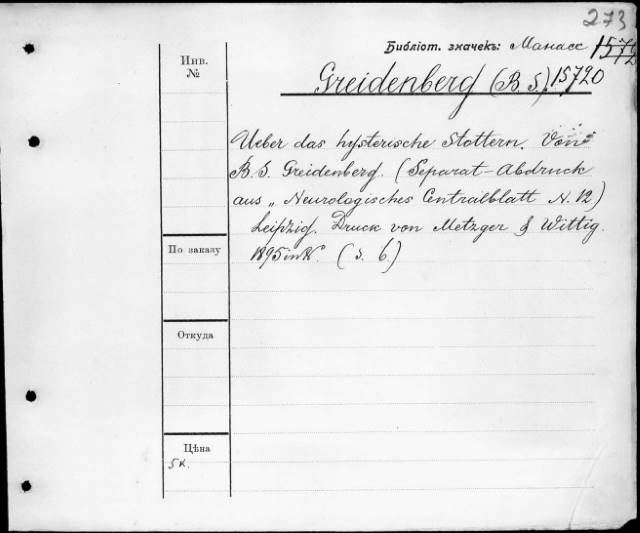 273
Библіот. значекъ: Манасс 1572
Greidenberg (B. S.) 15720
Инв.
№
Ueber das hysterische Stottern. Von
B. S. Greidenberg. (Separat-Abdruck
aus „Neurologisches Centralblatt N. 12.)
Leipzig. Druck von Metzger & Wittig.
1895 in 8°. (S. 6.)
По заказу
Откуда
Цѣна
5 к.